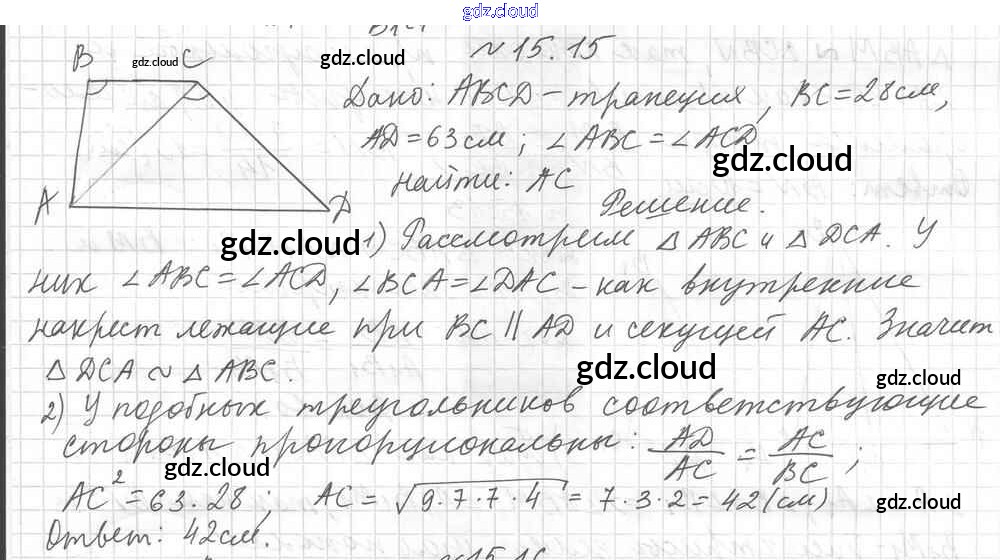 gdz.cloud
№ 15.15
B C
gdz.cloud
gdz.cloud
Дано: ABCD – трапеция, BC = 28 см,
AD = 63 см; ∠ABC = ∠ACD
gdz.cloud
Найти: AC
A D
Решение.
gdz.cloud
gdz.cloud
1) Рассмотрим △ ABC и △ DCA. У
них ∠ABC = ∠ACD, ∠BCA = ∠DAC – как внутренние
накрест лежащие при BC || AD и секущей AC. Значит
△ DCA ~ △ ABC.
gdz.cloud
gdz.cloud
2) У подобных треугольников соответствующие
стороны пропорциональны: AD/AC = AC/BC;
gdz.cloud
AC² = 63·28; AC = √9·7·7·4 = 7·3·2 = 42 (см)
gdz.cloud
Ответ: 42 см.